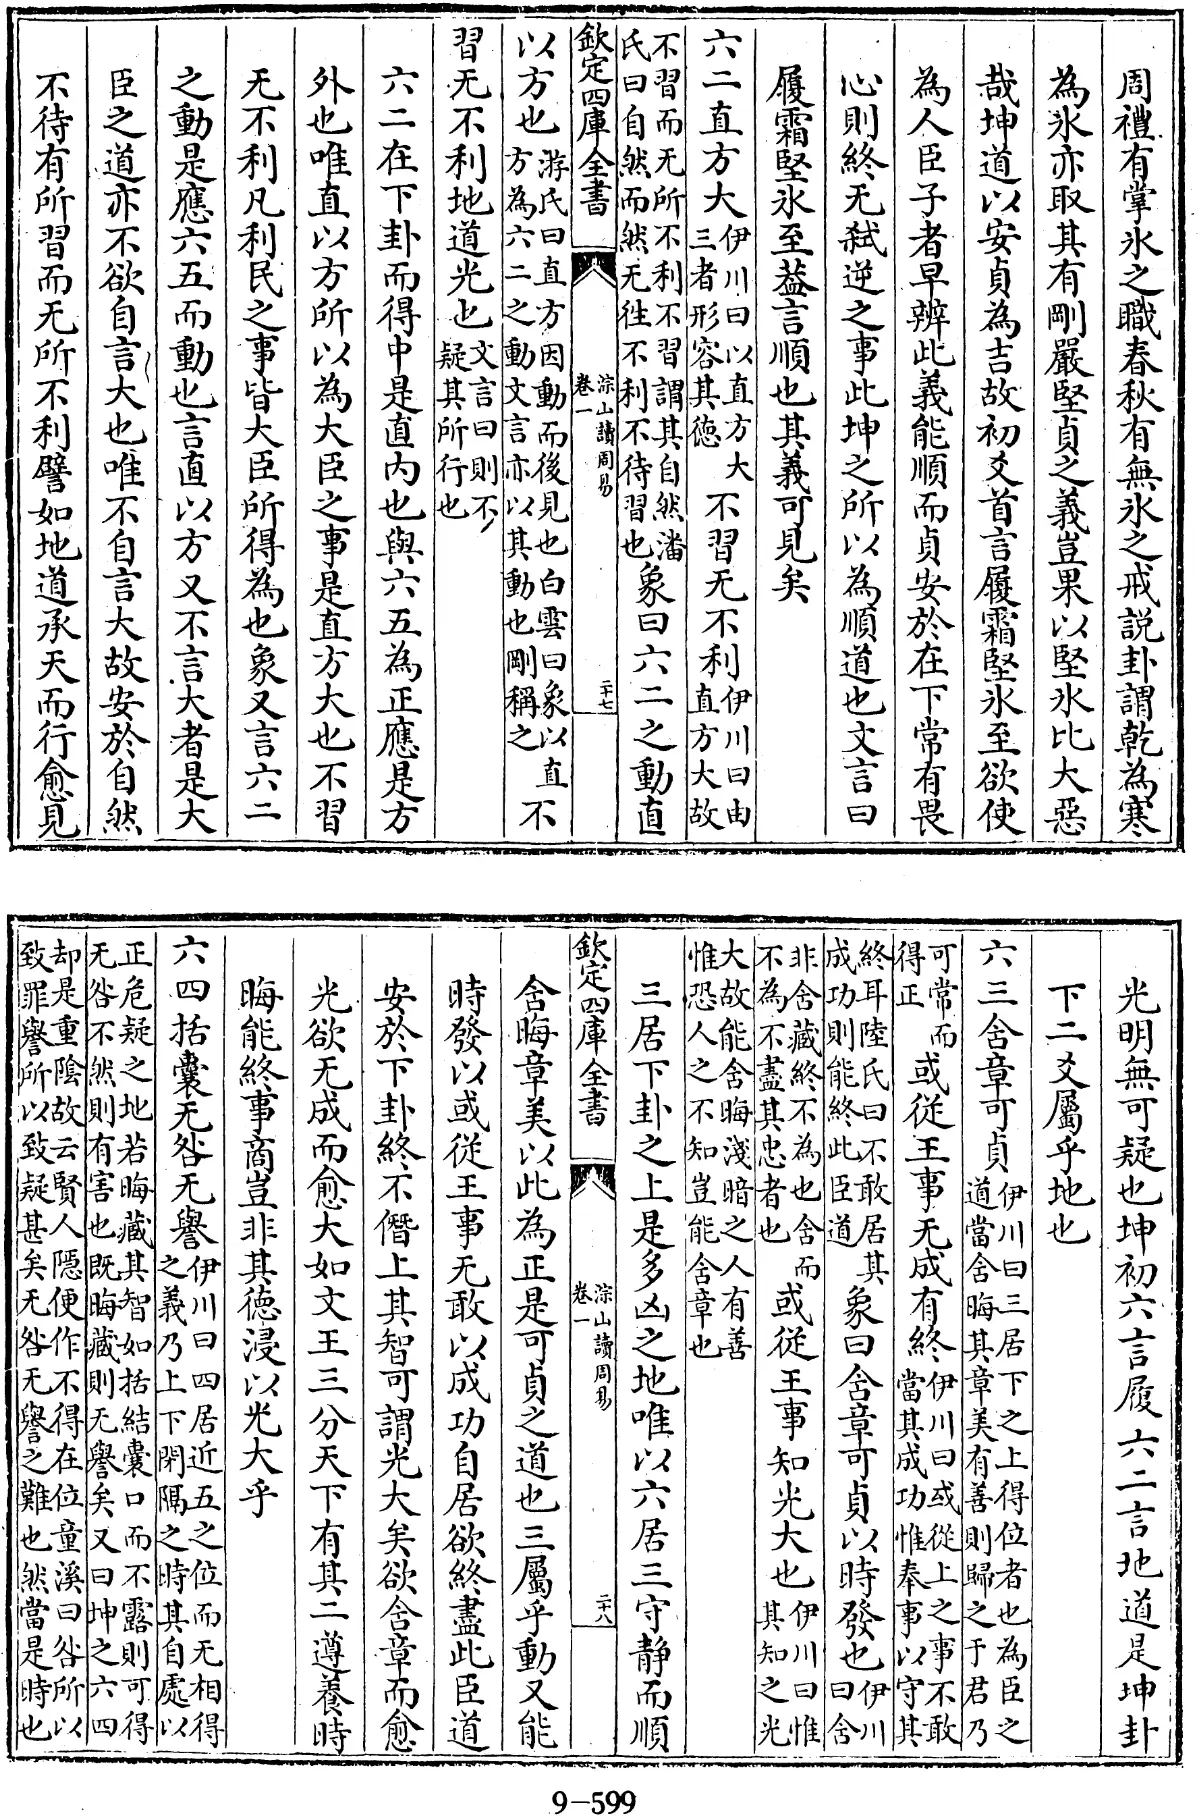 周禮有掌氷之職春秋有無氷之戒説卦謂乾為寒
為氷亦取其有剛嚴堅貞之義豈果以堅氷比大惡
哉坤道以安貞為吉故初爻首言履霜堅氷至欲使
為人臣子者早辨此義能順而貞安於在下常有畏
心則終无弑逆之事此坤之所以為順道也文言曰
履霜堅氷至葢言順也其義可見矣
六二直方大伊川曰以直方大三者形容其德不習无不利伊川曰由直方大故
不習而无所不利不習謂其自然潘氏曰自然而然无往不利不待習也象曰六二之動直
欽定四庫全書
淙山讀周易
卷一
二十七
以方也游氏曰直方因動而後見也白雲曰象以直方為六二之動文言亦以其動也剛稱之不
習无不利地道光也文言曰則不疑其所行也
六二在下卦而得中是直内也與六五為正應是方
外也唯直以方所以為大臣之事是直方大也不習
无不利凡利民之事皆大臣所得為也象又言六二
之動是應六五而動也言直以方又不言大者是大
臣之道亦不欲自言大也唯不自言大故安於自然
不待有所習而无所不利譬如地道承天而行愈見
光明無可疑也坤初六言履六二言地道是坤卦
下二爻屬乎地也
六三含章可貞伊川曰三居下之上得位者也為臣之道當含晦其章美有善則歸之于君乃
可常而得正或從王事无成有終伊川曰或從上之事不敢當其成功惟奉事以守其
終耳陸氏曰不敢居其成功則能終此臣道象曰含章可貞以時發也伊川曰含
非含藏終不為也含而不為不盡其忠者也或從王事知光大也伊川曰惟其知之光
大故能含晦淺暗之人有善惟恐人之不知豈能含章也
三居下卦之上是多凶之地唯以六居三守静而順
欽定四庫全書
淙山讀周易
卷一
二十八
含晦章美以此為正是可貞之道也三屬乎動又能
時發以或從王事无敢以成功自居欲終盡此臣道
安於下卦終不僭上其智可謂光大矣欲含章而愈
光欲无成而愈大如文王三分天下有其二遵養時
晦能終事商豈非其德浸以光大乎
六四括囊无咎无譽伊川曰四居近五之位而无相得之義乃上下閉隔之時其自處以
正危疑之地若晦藏其智如括結囊口而不露則可得无咎不然則有害也既晦藏則无譽矣又曰坤之六四
却是重隂故云賢人隱便作不得在位童溪曰咎所以致罪譽所以致疑甚矣无咎无譽之難也然當是時也
9-599